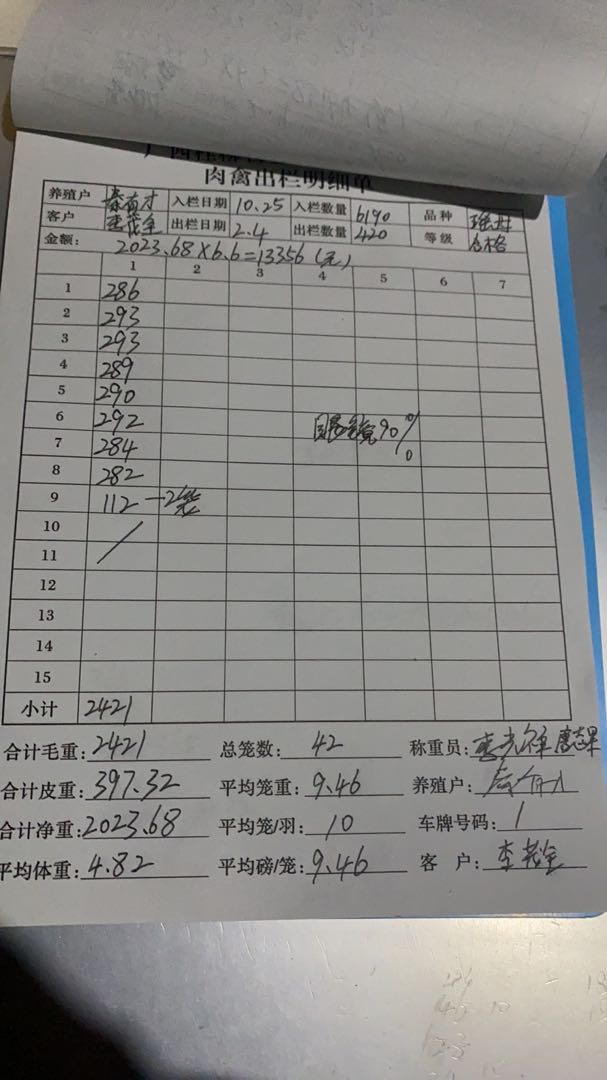 肉禽出栏明细单
养殖户 秦有才 入栏日期 10.25 入栏数量 6190 品种 瑶母
客户 李茂全 出栏日期 2.4 出栏数量 420 等级 合格
金额: 2023.68×6.6=13356(元)
1 2 3 4 5 6 7
1 286
2 293
3 293
4 289
5 290
6 292 90%
7 284
8 282
9 112 —2笼
10
11
12
13
14
15
小计 2421
合计毛重: 2421 总笼数: 42 称重员:
合计皮重: 397.32 平均笼重: 9.46 养殖户:
合计净重: 2023.68 平均笼/羽: 10 车牌号码: 1
平均体重: 4.82 平均磅/笼: 9.46 客 户: 李茂全